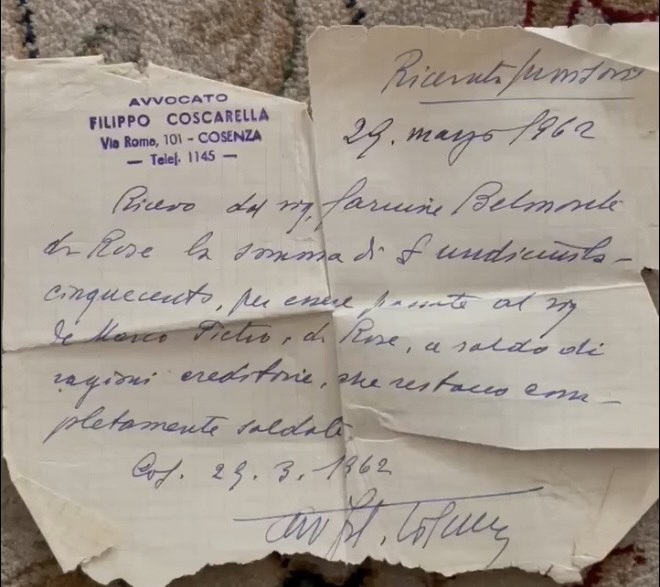 AVVOCATO
FILIPPO COSCARELLA
Via Roma, 101 - COSENZA
— Telef. 1145 —
Ricevuta provvisoria
29. marzo 1962
Ricevo dal sig. Carmine Belmonte
da Rose la somma di £ undicimila-
cinquecento, per essere passate al sig
De Marco Pietro, da Rose, a saldo di
ragioni creditorie, che restano com-
pletamente saldate
Cos. 29. 3. 1962